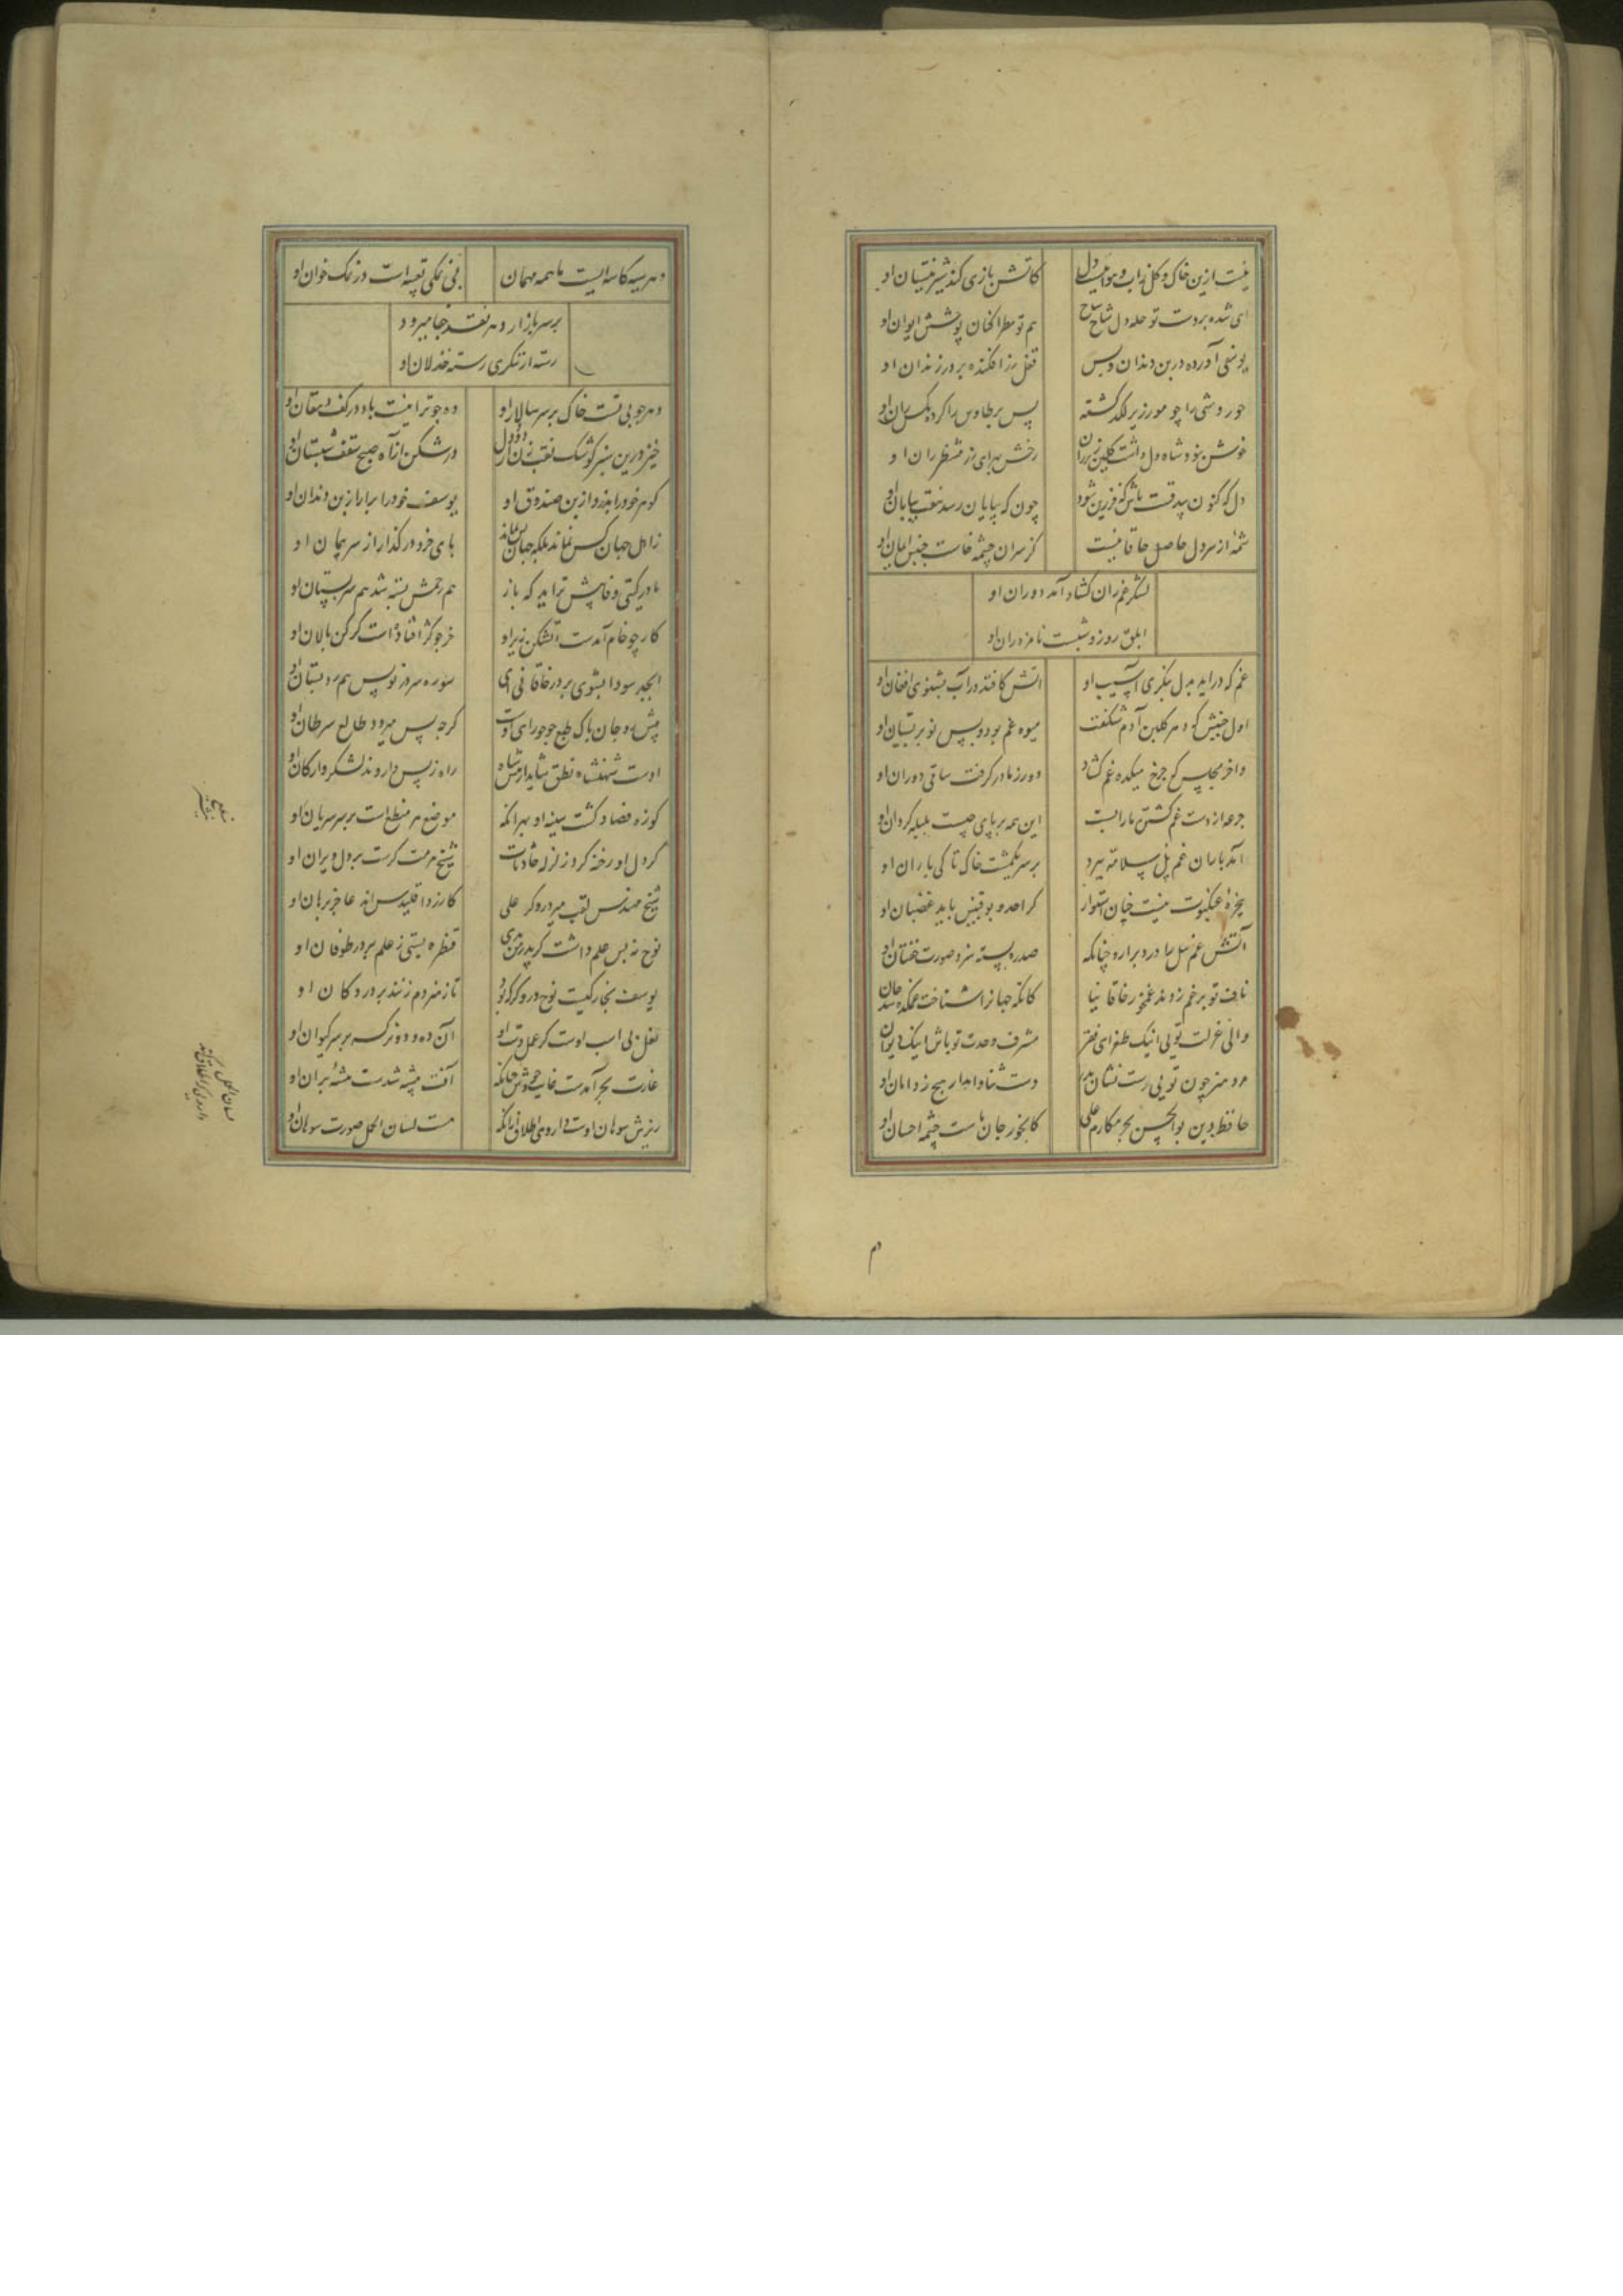 نیست ازین خاک و گل زاب و هواییست دل
کاتش بازی کند شیر نیستان او
ای شده بر دست تو حله دل شاخ شاخ
هم تو مطرا کنان پوشش ایوان او
یوسفی آورده درین دندان و پس
قفل زر افکنده بر در زندان او
حور وشی را چو مور زیر لکد کشته
پس پر طاوس را کرده مکس ران او
خوش نبود شاه دل داشت کلین زیر ران
رخش برای ز منتظر ران او
دل که کنون بیدقست باش که فرزین شود
چون که بپایان رسد هفت بیابان او
شمهٔ از سر دل حاصل خاقانیست
کز سر آن چشمه خاست جنبش ایمان او
لشکر غم ران کشاد آمد دوران او
ابلق روز و شبست نامزد ران او
غم که دراید بدل بنکری آسیب او
اتش کافتد در آب بشنوی افغان او
اول جنبش که هر کلبن آدم شکفت
میوه غم بود و بس نوبر بستان او
واخر مجلس که چرخ میکده غم کشاد
دور ز مادر کرفت ساقی دوران او
جرعه از دست غم کشتن ما را بست
این همه بر پای چیست بلبله کردان او
آمد باران غم پل سلامت ببرد
بر سر یکمشت خاک تا کی باران او
پنجرهٔ عنکبوت نیست چنان استوار
کز احد و بوقبیس باید غضبان او
آتش غم پیل را دود برارد چنانکه
صدره پسته سزد صورت خفتان او
ناف تو بر غم زدند غم خور خاقانیا
کانکه جهان را شناخت غمکده شد جان او
والی عزلت تویی اینک طغرای فقر
مشرف وحدت تو باش اینک دیوان او
مرد هنر چون تویی رست نشان بدر
دست ثنا وامدار هیچ ز دامان او
حافظ دین بوالحسن بحر مکارم علی
کابخور جان ماست چشمه احسان او
دم
دهر سیه کاسه ایست ما همه مهمان
بی نمکی تعبیه است در نمک خوان او
بر سر بازار دهر نقد جفا میرود
رسته از ننکری رسته خذلان او
دهر چو بی تست خاک بر سر سالار او
ده چو ترا نیست باد در کف دهقان او
خیز درین سبز کوشک نقب زن از دود دل
درشکن از آه صبح سقف شبستان او
کوهر خود را بدزد از بن صندوق او
یوسف خود را برار از بن دندان او
زاهل جهان کس نماند بلکه جهان بس نماند
پای خرد در کذار از سر پیمان او
مادر کیتی وفا بیش نزاید که باز
هم رحمش بسته شد هم سر پستان او
کار چو خام آمدت آتشکن زیر او
خر چو کژ افتاده است کر کن پالان او
ابجد سودا بشوی بر در خاقانی ای
سوره سر در نویس هم بر دبستان او
پیش رود جان پاک طبع چو جوزای اوست
کرچه پس میرود طالع سرطان او
اوست شهنشاه نطق شاید از پیش شاه
راه ز پس دارد لشکر و ارکان او
کوزه فصاد کشت سینه او بهر آنکه
موضع هر مبضع است بر سر شریان او
کر دل او رخنه کرد زلزله حادثات
شیخ مرمت کرست بر دل ویران او
شیخ مهندس لقب پیر دروکر علی
کازر و اقلیدس اند عاجز برهان او
نوح نه بس علم داشت کر پدر من بدی
قنطره بستی ز علم بر در طوفان او
یوسف نجار کیست نوح دروکر که بود
تا ز هنر دم زنند بر در دکان او
نعل بی اسب اوست کر عمل دست او
آن ده و دو نرکسه بر سر کیوان او
غارت بحر آمدست غایت جوش چنانکه
آفت پیشه شدست تیشهٔ بران او
ریزش سوهان اوست داروی اطلاق زانکه
هست لسان الحمل صورت سوهان او